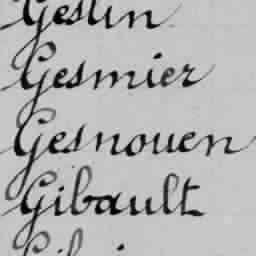 Gestin
Gesmier
Gesnouen
Gibault